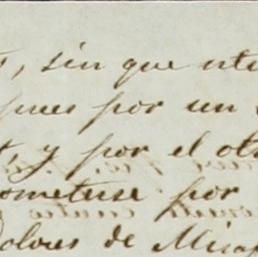 , sin que
pues por un
, y por el otr
ometerse por
olores de Mira